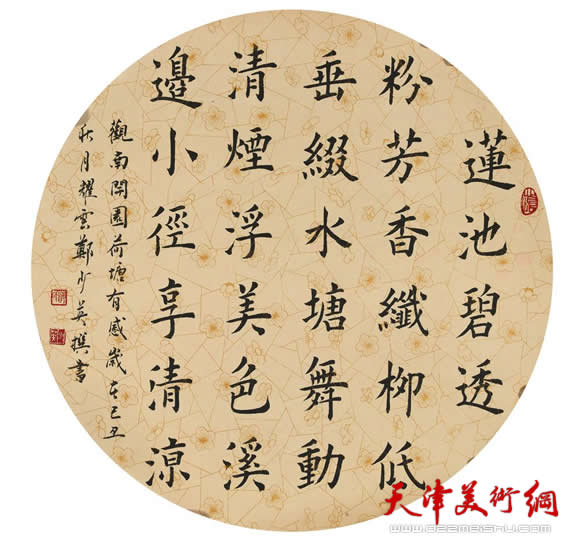 蓮池碧透
粉芳香纖柳低
垂綴水塘舞動
清煙浮美色溪
邊小徑享清涼
觀南開園荷塘有感歲在己丑
秋月耀雲鄭少英撰書
天津美術網
www.022meishu.com